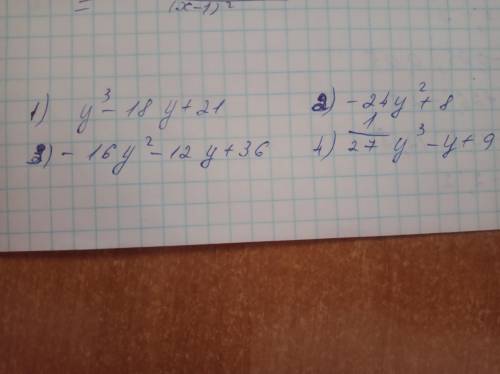 = (x-1)²
1) y³ - 18y + 21
2) - 24y² + 8
3) - 16y² - 12y + 36
4) 1/27 y³ - y + 9